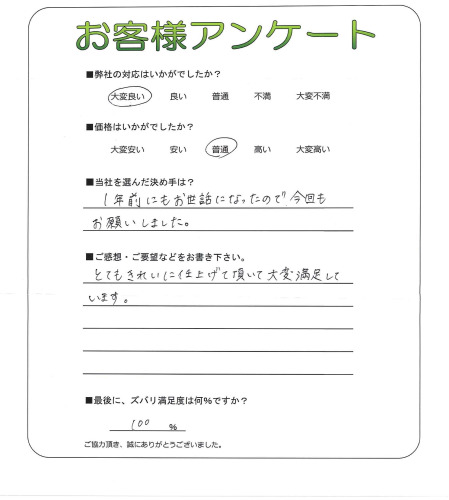 お客様アンケート
■弊社の対応はいかがでしたか？
大変良い 良い 普通 不満 大変不満
■価格はいかがでしたか？
大変安い 安い 普通 高い 大変高い
■当社を選んだ決め手は？
1年前にもお世話になったので、今回も
お願いしました。
■ご感想・ご要望などをお書き下さい。
とてもきれいに仕上げて頂いて大変満足して
います。
■最後に、ズバリ満足度は何%ですか？
100 %
ご協力頂き、誠にありがとうございました。